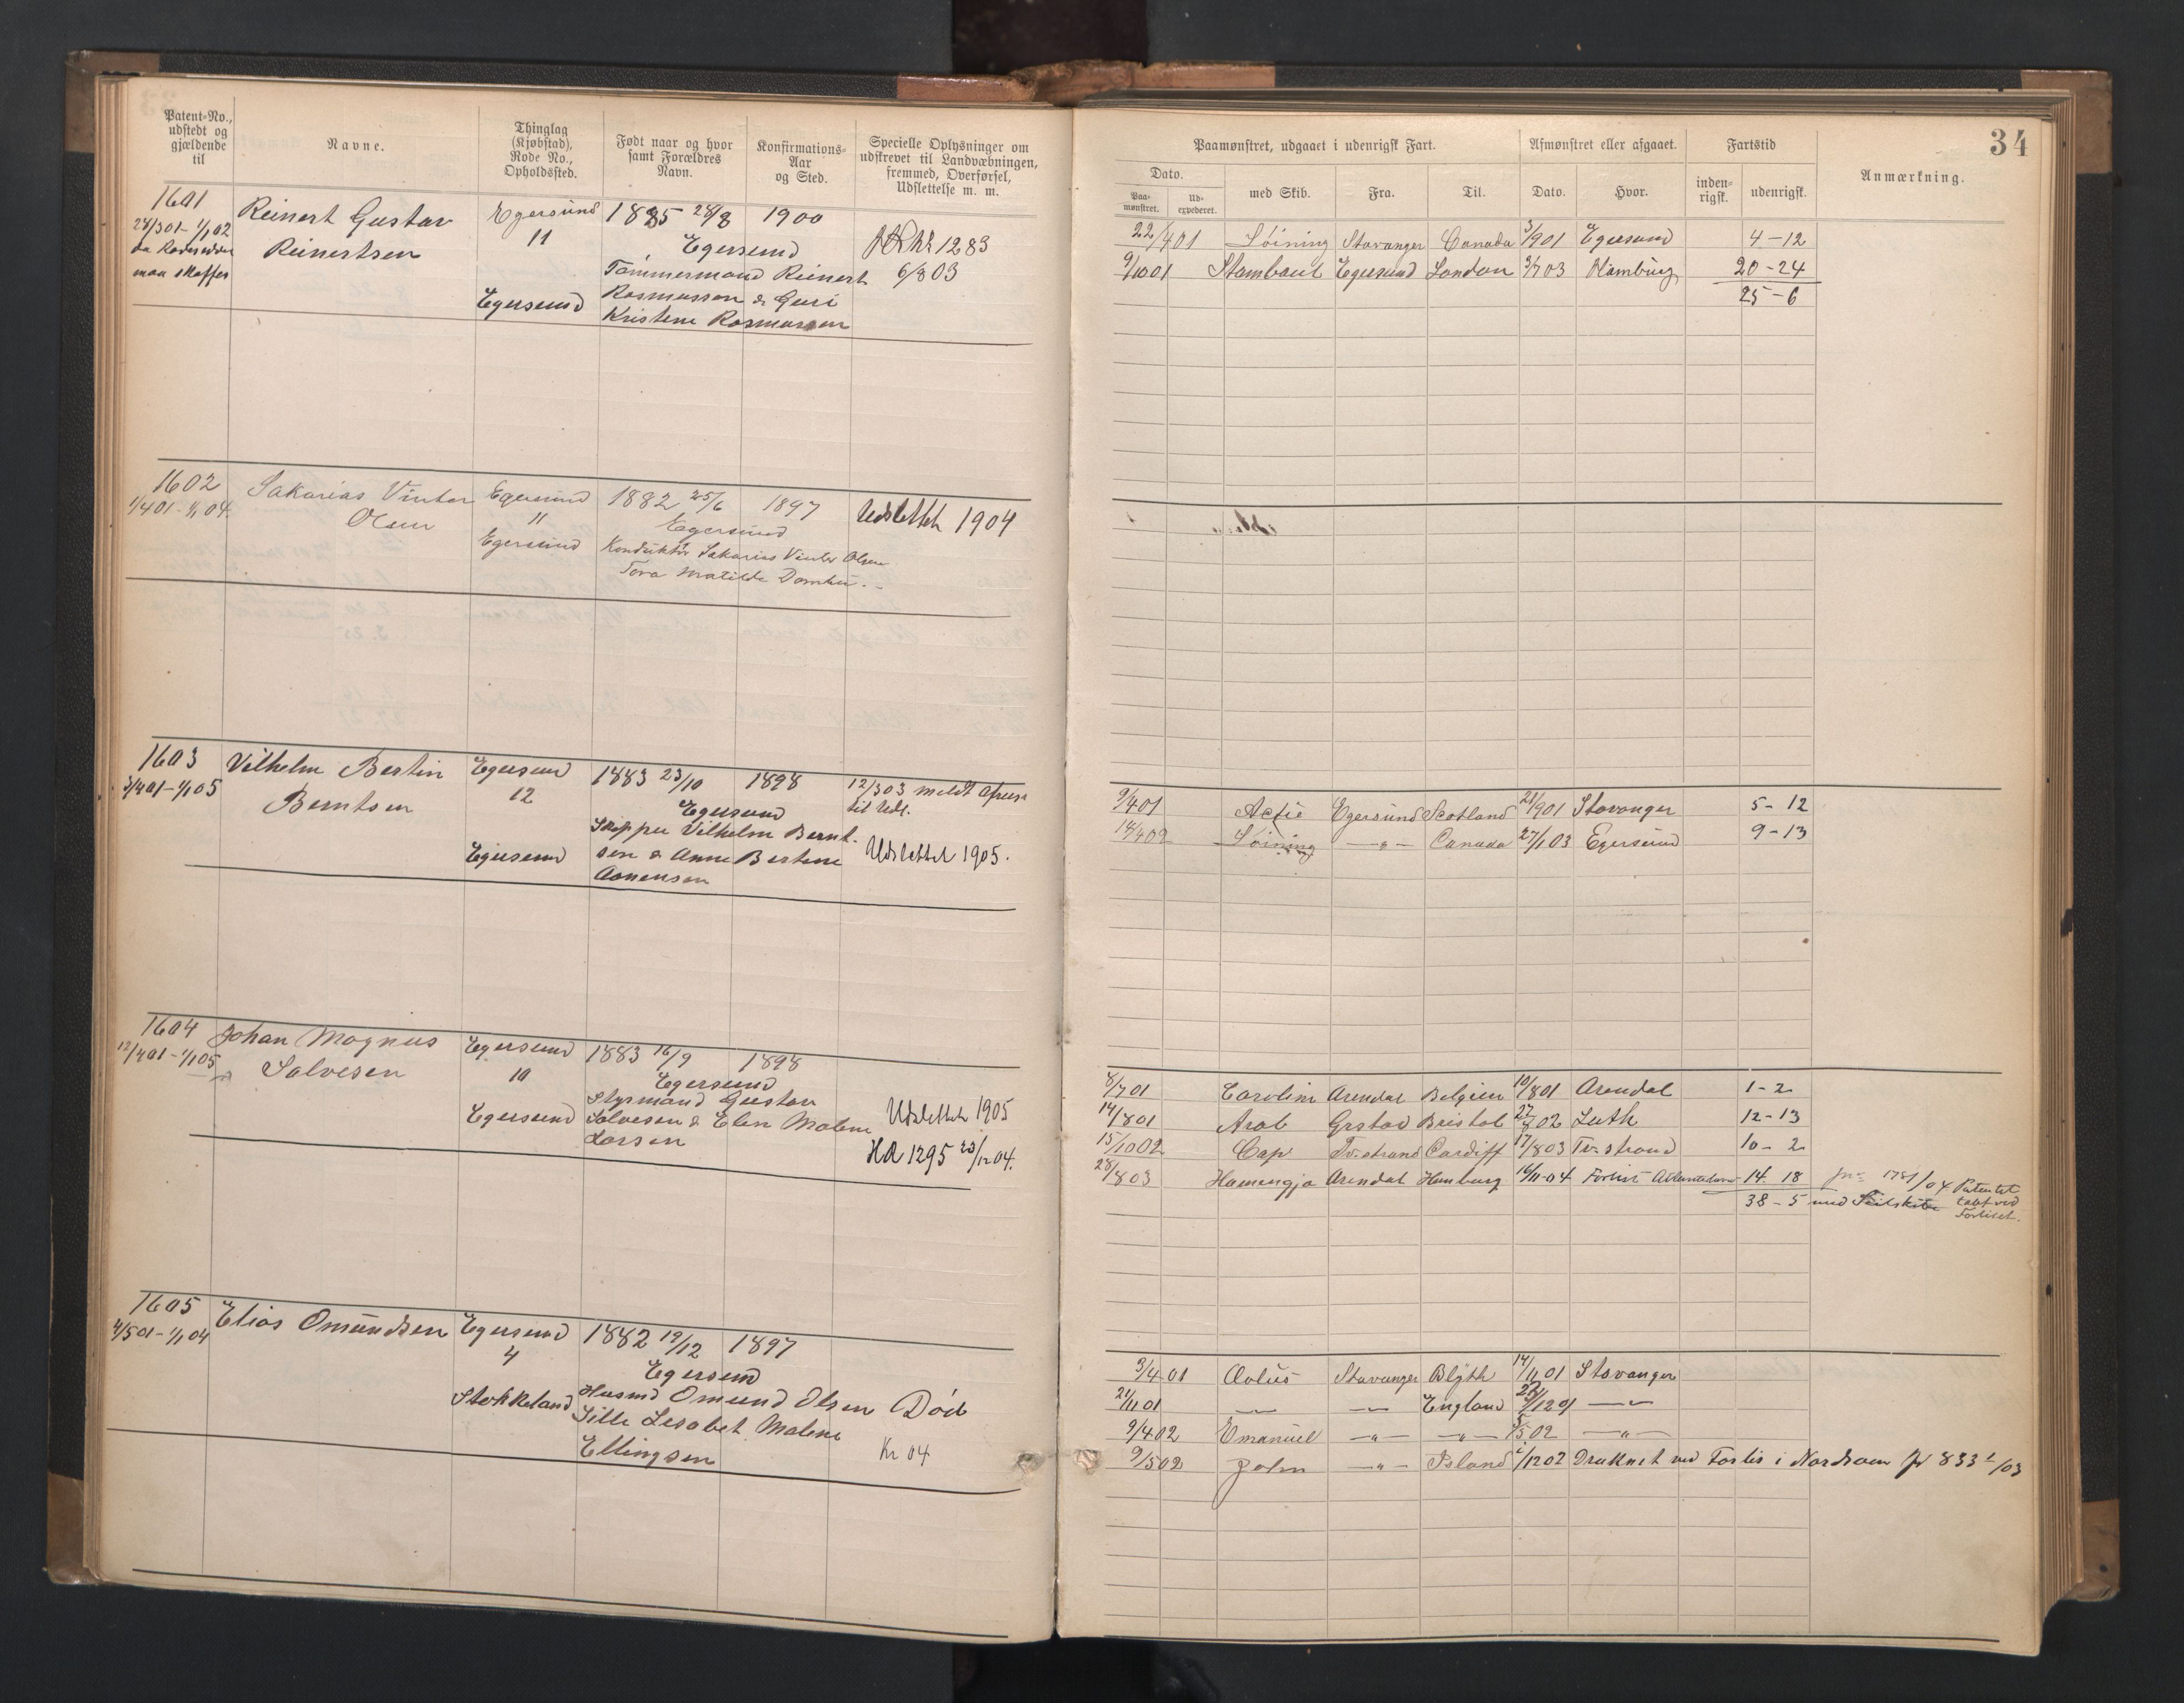 Patent-No., udstedt og gjældende til
Navne.
Thinglag (Kjøbstad), Rode No., Opholdssted.
Født naar og hvor samt Forældres Navn.
Konfirmations-Aar og Sted.
Specielle Oplysninger om udskrevet til Landvæbningen, fremmed, Overførsel, Udslettelse m. m.
1601
Reinert Gustav
Egersund
1885 28/8
1900
28/3 01 - 1/1 02
Reinertsen
11
Egersund
1283
Tømmermand Reinert
6/8 03
Egersund
Rasmussen & Guri
Kristene Rasmussen
1602
Sakarias Vinter
Egersund
1882 25/6
1897
Udslettet 1904
1/4 01 - 1/1 04.
Olsen
11
Egersund
Egersund
Konduktør Sakarias Vinter Olsen
Tora Matilde
1603
Vilhelm Bertin
Egersund
1883 23/10
1898
12/3 03 meldt Afreise
3/4 01 - 1/1 05
Berntsen
12
Egersund
til Udl.
Skipper Vilhelm Bernt-
Egersund
sen & Anne Bertene
Udslettet 1905.
Aanensen
1604
Johan Magnus
Egersund
1883 16/9
1898
12/4 01 - 1/1 05
Salvesen
10
Egersund
Styrmand Gustav
Egersund
Salvesen & Elen Malene
Udslettet 1905
Larsen
1295 23/12 04.
1605
Elias Omundsen
Egersund
1882 19/12
1897
4/5 01 - 1/1 04
4
Egersund
Stokkeland
Husmd Omund Olsen
Død
Sille Lisabet Malene
Ellingsen
Kr 04
34
Paamønstret, udgaaet i udenrigsk Fart.
Afmønstret eller afgaaet.
Fartstid
Anmærkning.
Dato.
Paa-mønstret.
Ud-expederet.
med Skib.
Fra.
Til.
Dato.
Hvor.
inden-rigsk.
udenrigsk.
22/4 01 Löining Stavanger Canada 3/9 01 Egersund 4-12
9/10 01 Stamboul Egersund London 3/7 03 Hamburg 20-24
25-6
9/4 01 Egersund Scotland 21/9 01 Stavanger 5-12
14/4 02 Löining -"- Canada 27/1 03 Egersund 9-13
8/7 01 Caroline Arendal Belgien 10/8 01 Arendal 1-2
14/8 01 Arab Grstad Bristol 27/8 02 Leith 12-13
15/10 02 Cap Tvestrand Cardiff 17/8 03 Tv-strand 10-2
28/8 03 Hamengja Arendal Hamburg 16/11-04 Forlist Atlanterhavet 14 18
1781/04 Patentet
38-5 med Seilskibe tabt ved
Forliset.
3/4 01 Æolus Stavanger Blÿth 14/11 01 Stavanger
21/11 01 -"- -"- England /12 01 -"-
9/4 02 Emanuel -"- -"- 5/5 02 -"-
9/5 02 John -"- Island /12 02 Druknet ved Forlis i Nordsøen 833 /03